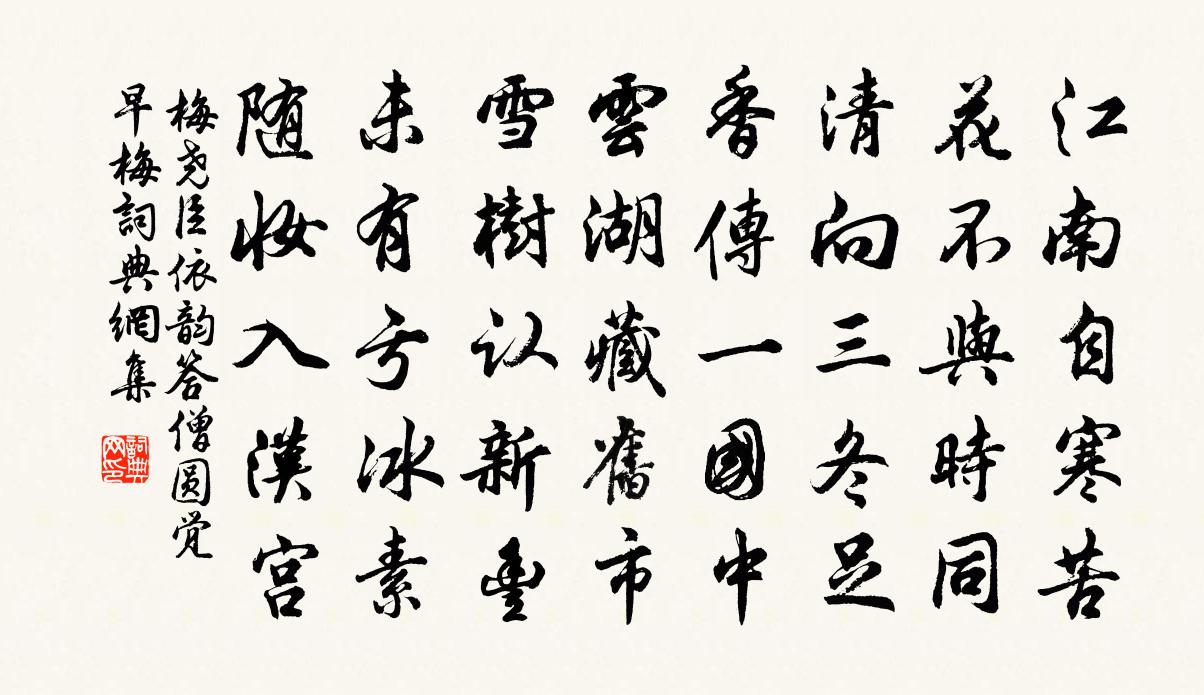 江南自寒苦
花不與時同
清向三冬足
香傳一國中
雲湖藏舊市
雪樹认新豐
未有亏冰素
随妆入漢宫
梅尧臣依韵答僧圆觉
早梅詞典網集
詞典网印